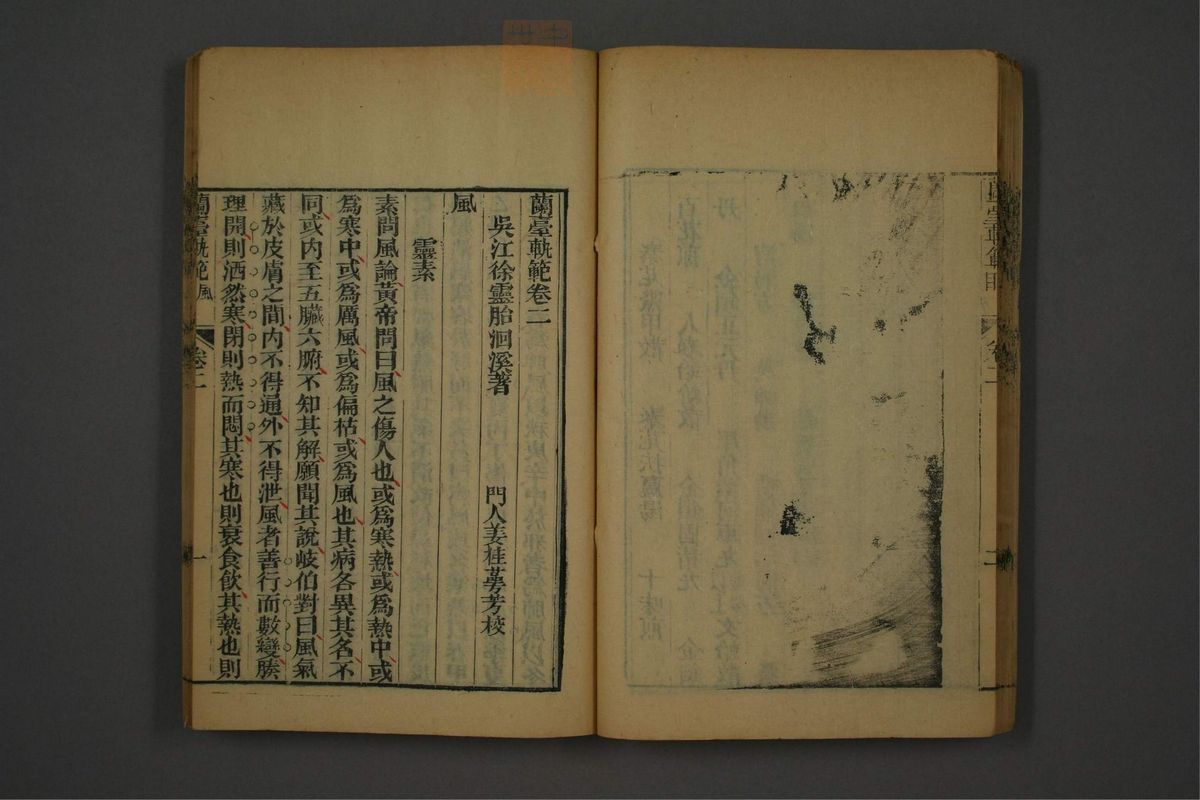 蘭臺軌範目
卷二
二
蘭臺軌範卷二
吳江徐靈胎洄溪著　門人姜桂蕚芳校
風
靈素
素問風論黃帝問曰風之傷人也或爲寒熱或爲熱中或
爲寒中或爲厲風或爲偏枯或爲風也其病各異其名不
同或內至五臟六腑不知其解願聞其說岐伯對曰風氣
藏於皮膚之間內不得通外不得泄風者善行而數變腠
理開則洒然寒閉則熱而悶其寒也則衰食飲其熱也則
蘭臺軌範
風
卷二
一